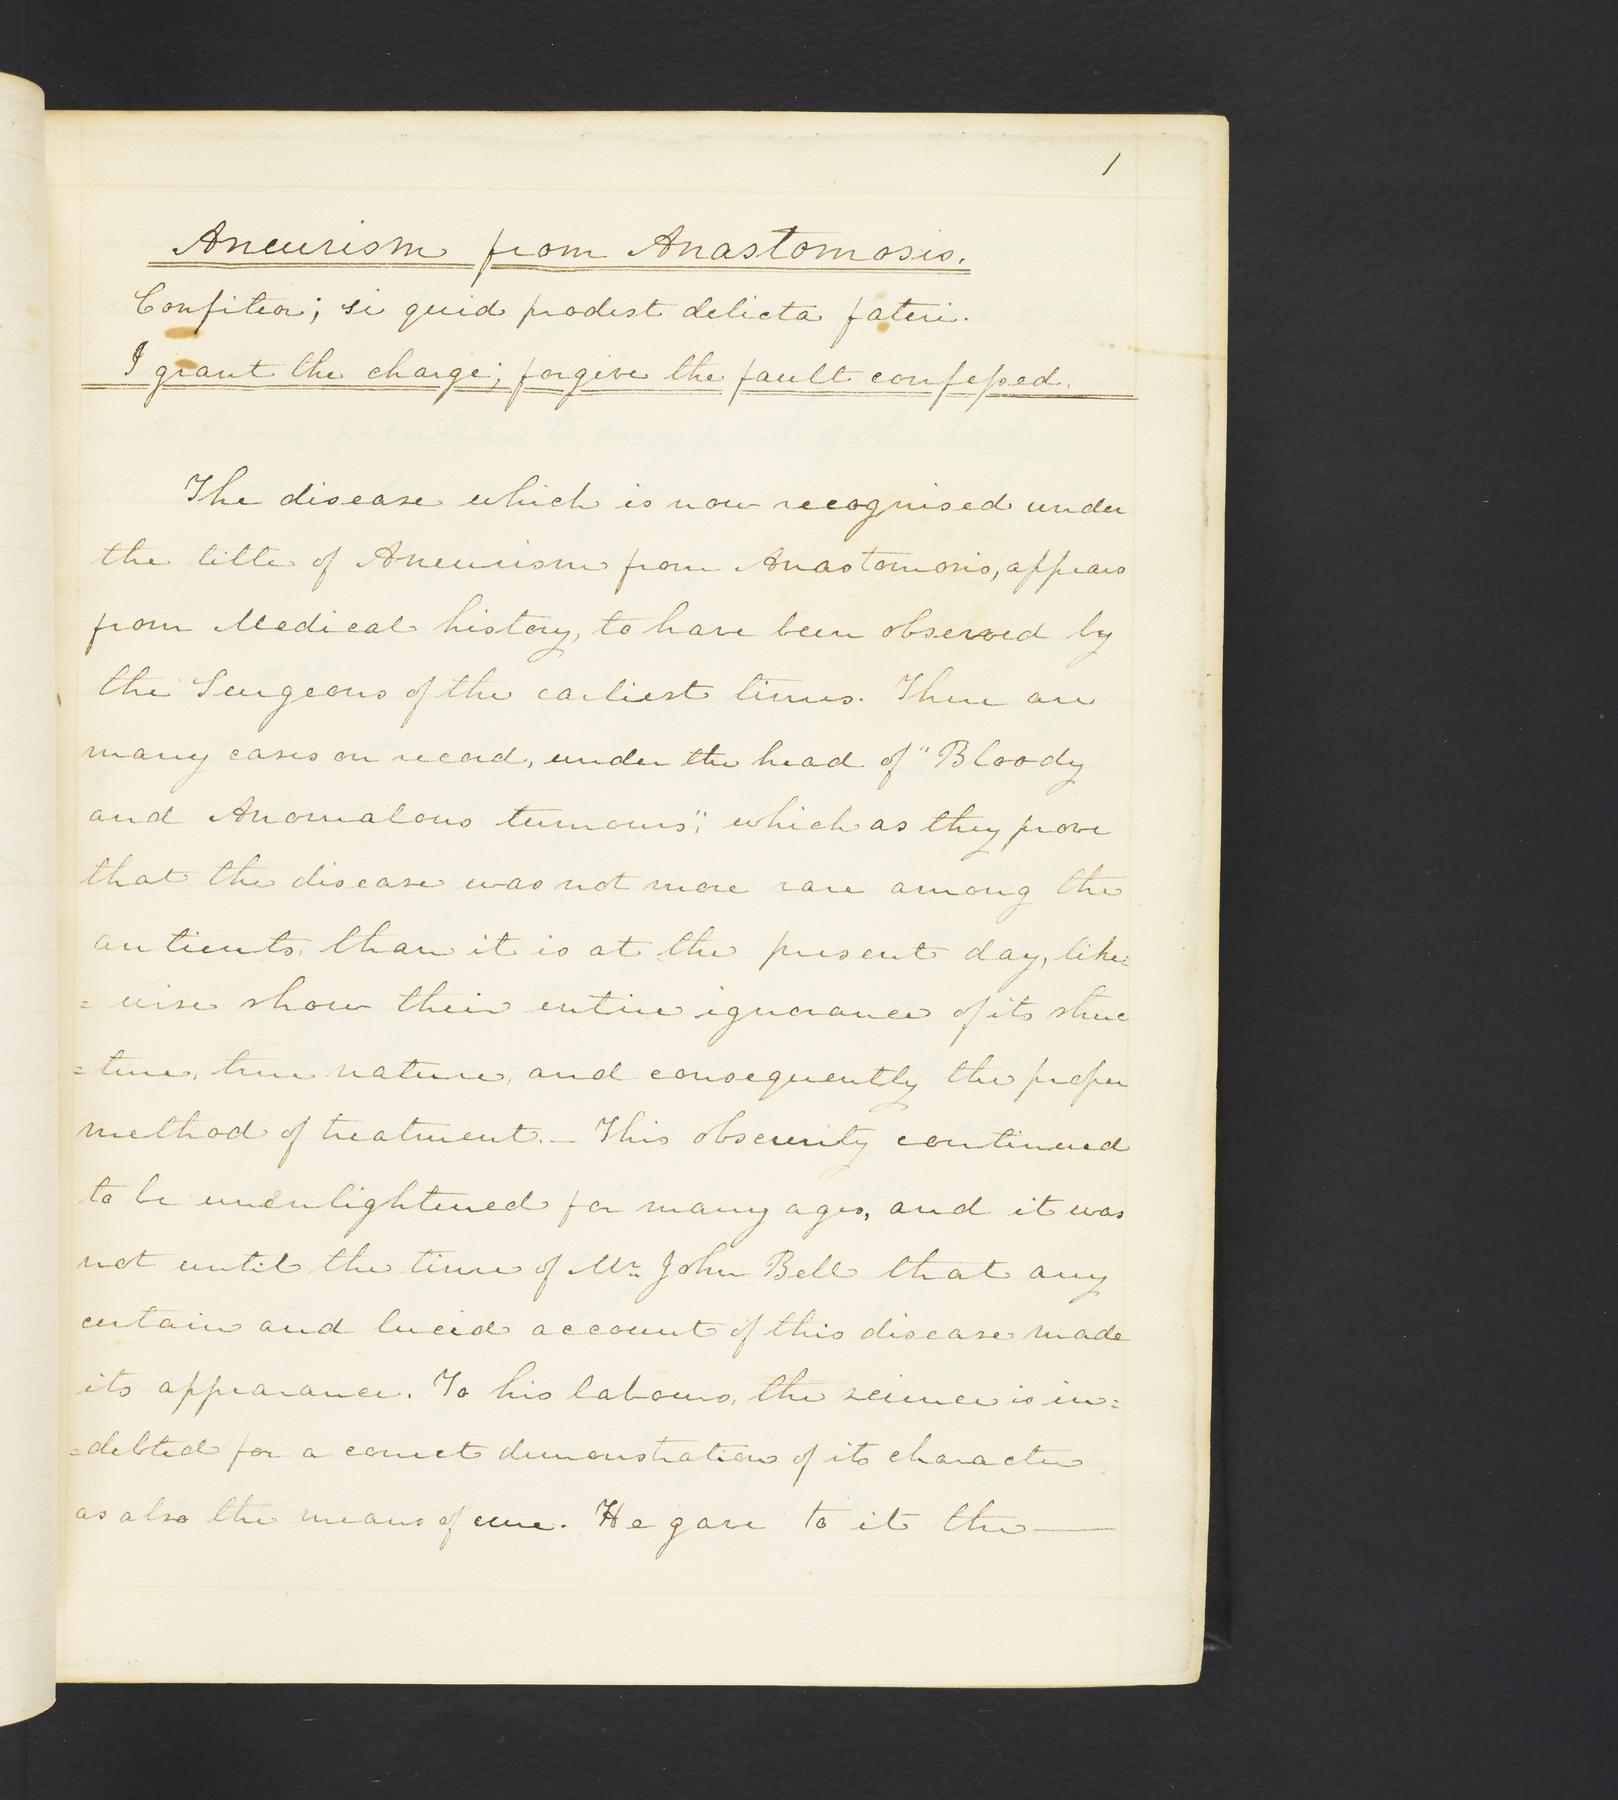 1
Aneurism from Anastomosis.
Confiteor; si quid prodest delicta fateri.
I grant the charge; forgive the fault confessed.
The disease which is now recognised under
the title of Aneurism from Anastomosis, appears
from Medical history, to have been observed by
the Surgeons of the earliest times. There are
many cases on record, under the head of "Bloody
and Anomalous tumours"; which as they prove
that the disease was not more rare among the
antients, than it is at the present day, like=
=wise show their entire ignorance of its struc
=ture, true nature, and consequently the proper
method of treatment. — This obscurity continued
to be unenlightened for many ages, and it was
not until the time of Mr. John Bell that any
certain and lucid account of this disease made
its appearance. To his labours, the science is in=
=debted for a correct demonstration of its character
as also the means of cure. He gave to it the —